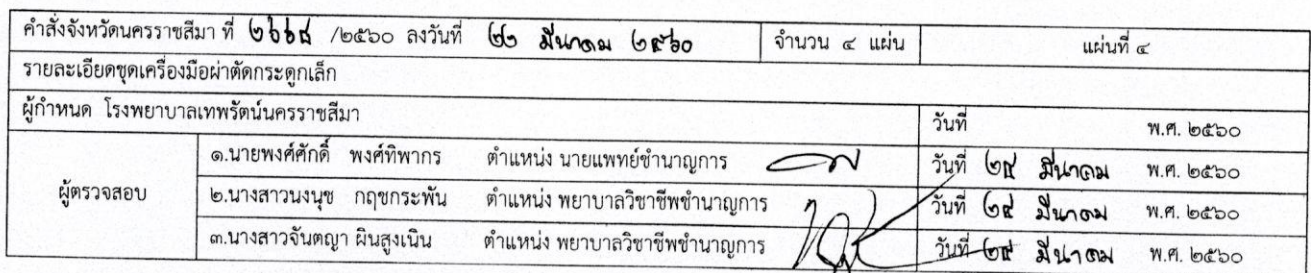 คำสั่งจังหวัดนครราชสีมา ที่ /๒๕๖๐ ลงวันที่ ๒๑ มีนาคม ๒๕๖๐ จำนวน ๔ แผ่น แผ่นที่ ๔
รายละเอียดชุดเครื่องมือผ่าตัดกระดูกเล็ก
ผู้กำหนด โรงพยาบาลเทพรัตน์นครราชสีมา วันที่ พ.ศ. ๒๕๖๐
๑.นายพงศ์ศักดิ์ พงศ์ทิพากร ตำแหน่ง นายแพทย์ชำนาญการ วันที่ ๒๔ มีนาคม พ.ศ. ๒๕๖๐
ผู้ตรวจสอบ ๒.นางสาวนงนุช กฤชกระพัน ตำแหน่ง พยาบาลวิชาชีพชำนาญการ วันที่ ๒๔ มีนาคม พ.ศ. ๒๕๖๐
๓.นางสาวจันตญา ผินสูงเนิน ตำแหน่ง พยาบาลวิชาชีพชำนาญการ วันที่ ๒๔ มีนาคม พ.ศ. ๒๕๖๐